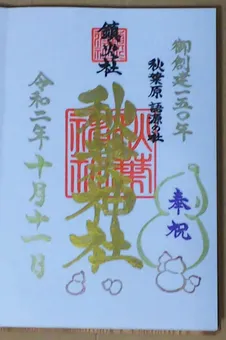 御創建一五〇年
奉祝
秋葉原 語源の社
鎮火社
秋葉神社
令和二年十月十一日